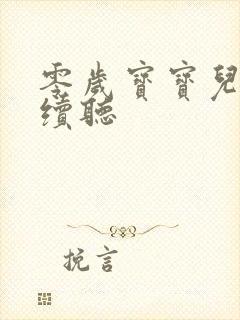 零歲寶寶兒
續聽
挽言